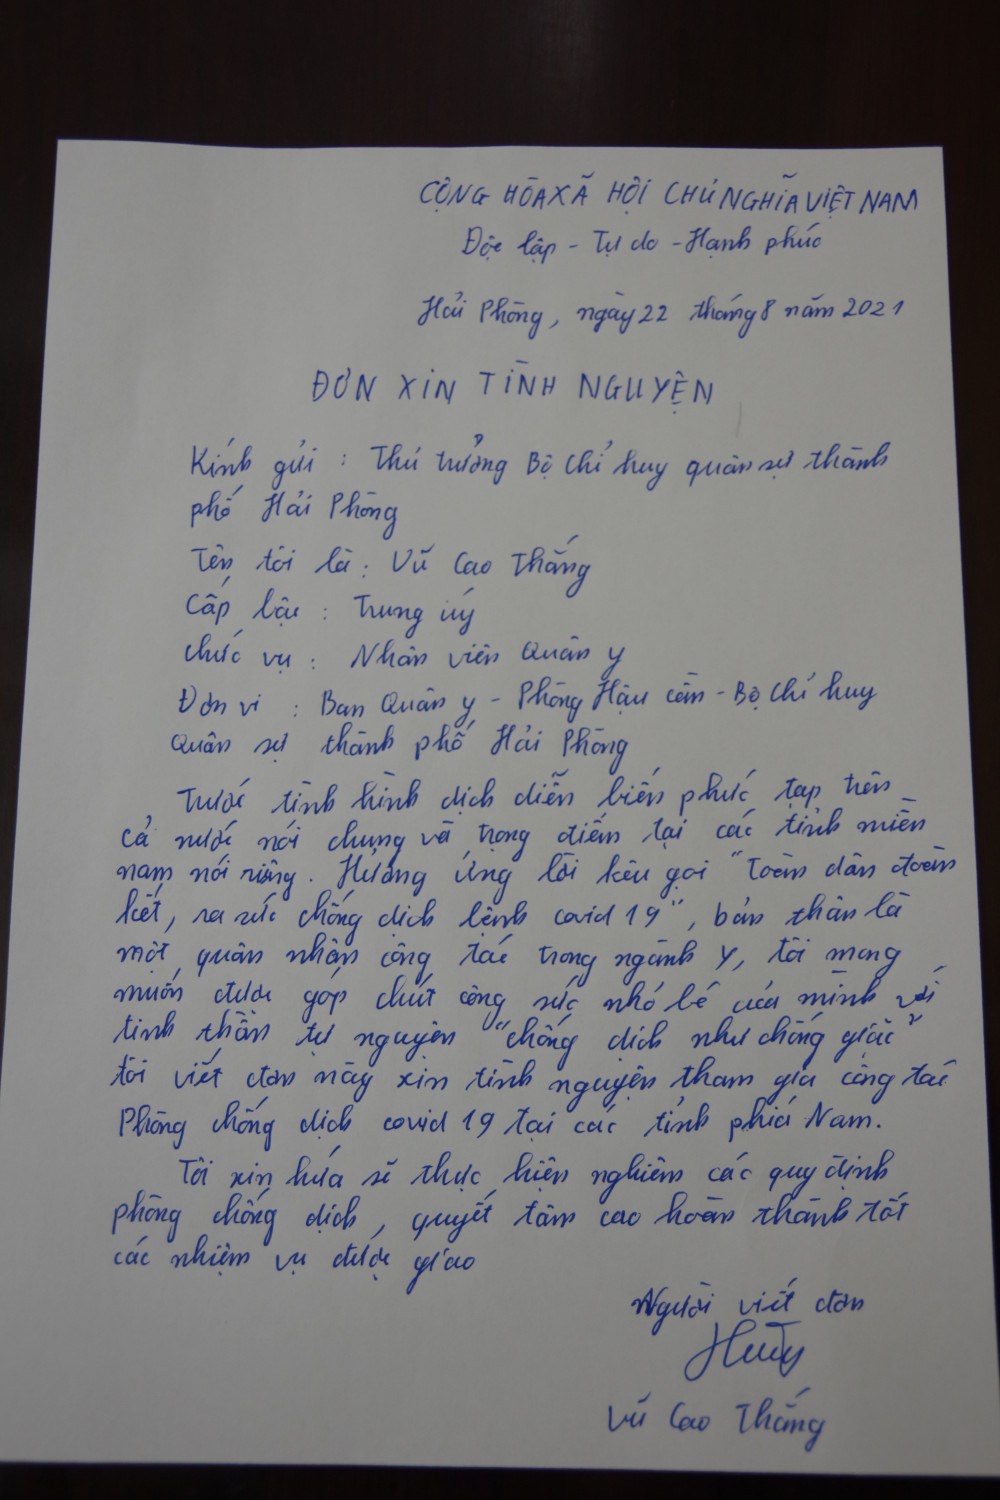 CỘNG HÒA XÃ HỘI CHỦ NGHĨA VIỆT NAM
Độc lập - Tự do - Hạnh phúc
Hải Phòng, ngày 22 tháng 8 năm 2021
ĐƠN XIN TÌNH NGUYỆN
Kính gửi : Thủ trưởng Bộ chỉ huy quân sự thành
phố Hải Phòng
Tên tôi là : Vũ Cao Thắng
Cấp bậc : Trung úy
Chức vụ : Nhân viên Quân y
Đơn vị : Ban Quân y - Phòng Hậu cần - Bộ Chỉ huy
Quân sự thành phố Hải Phòng
Trước tình hình dịch diễn biến phức tạp trên
cả nước nói chung và trọng điểm tại các tỉnh miền
nam nói riêng. Hưởng ứng lời kêu gọi "Toàn dân đoàn
kết, ra sức chống dịch bệnh covid 19", bản thân là
một quân nhân công tác trong ngành y, tôi mong
muốn được góp chút công sức nhỏ bé của mình với
tinh thần tự nguyện "chống dịch như chống giặc"
tôi viết đơn này xin tình nguyện tham gia công tác
Phòng chống dịch covid 19 tại các tỉnh phía Nam.
Tôi xin hứa sẽ thực hiện nghiêm các quy định
phòng chống dịch, quyết tâm cao hoàn thành tốt
các nhiệm vụ được giao
Người viết đơn
Vũ Cao Thắng